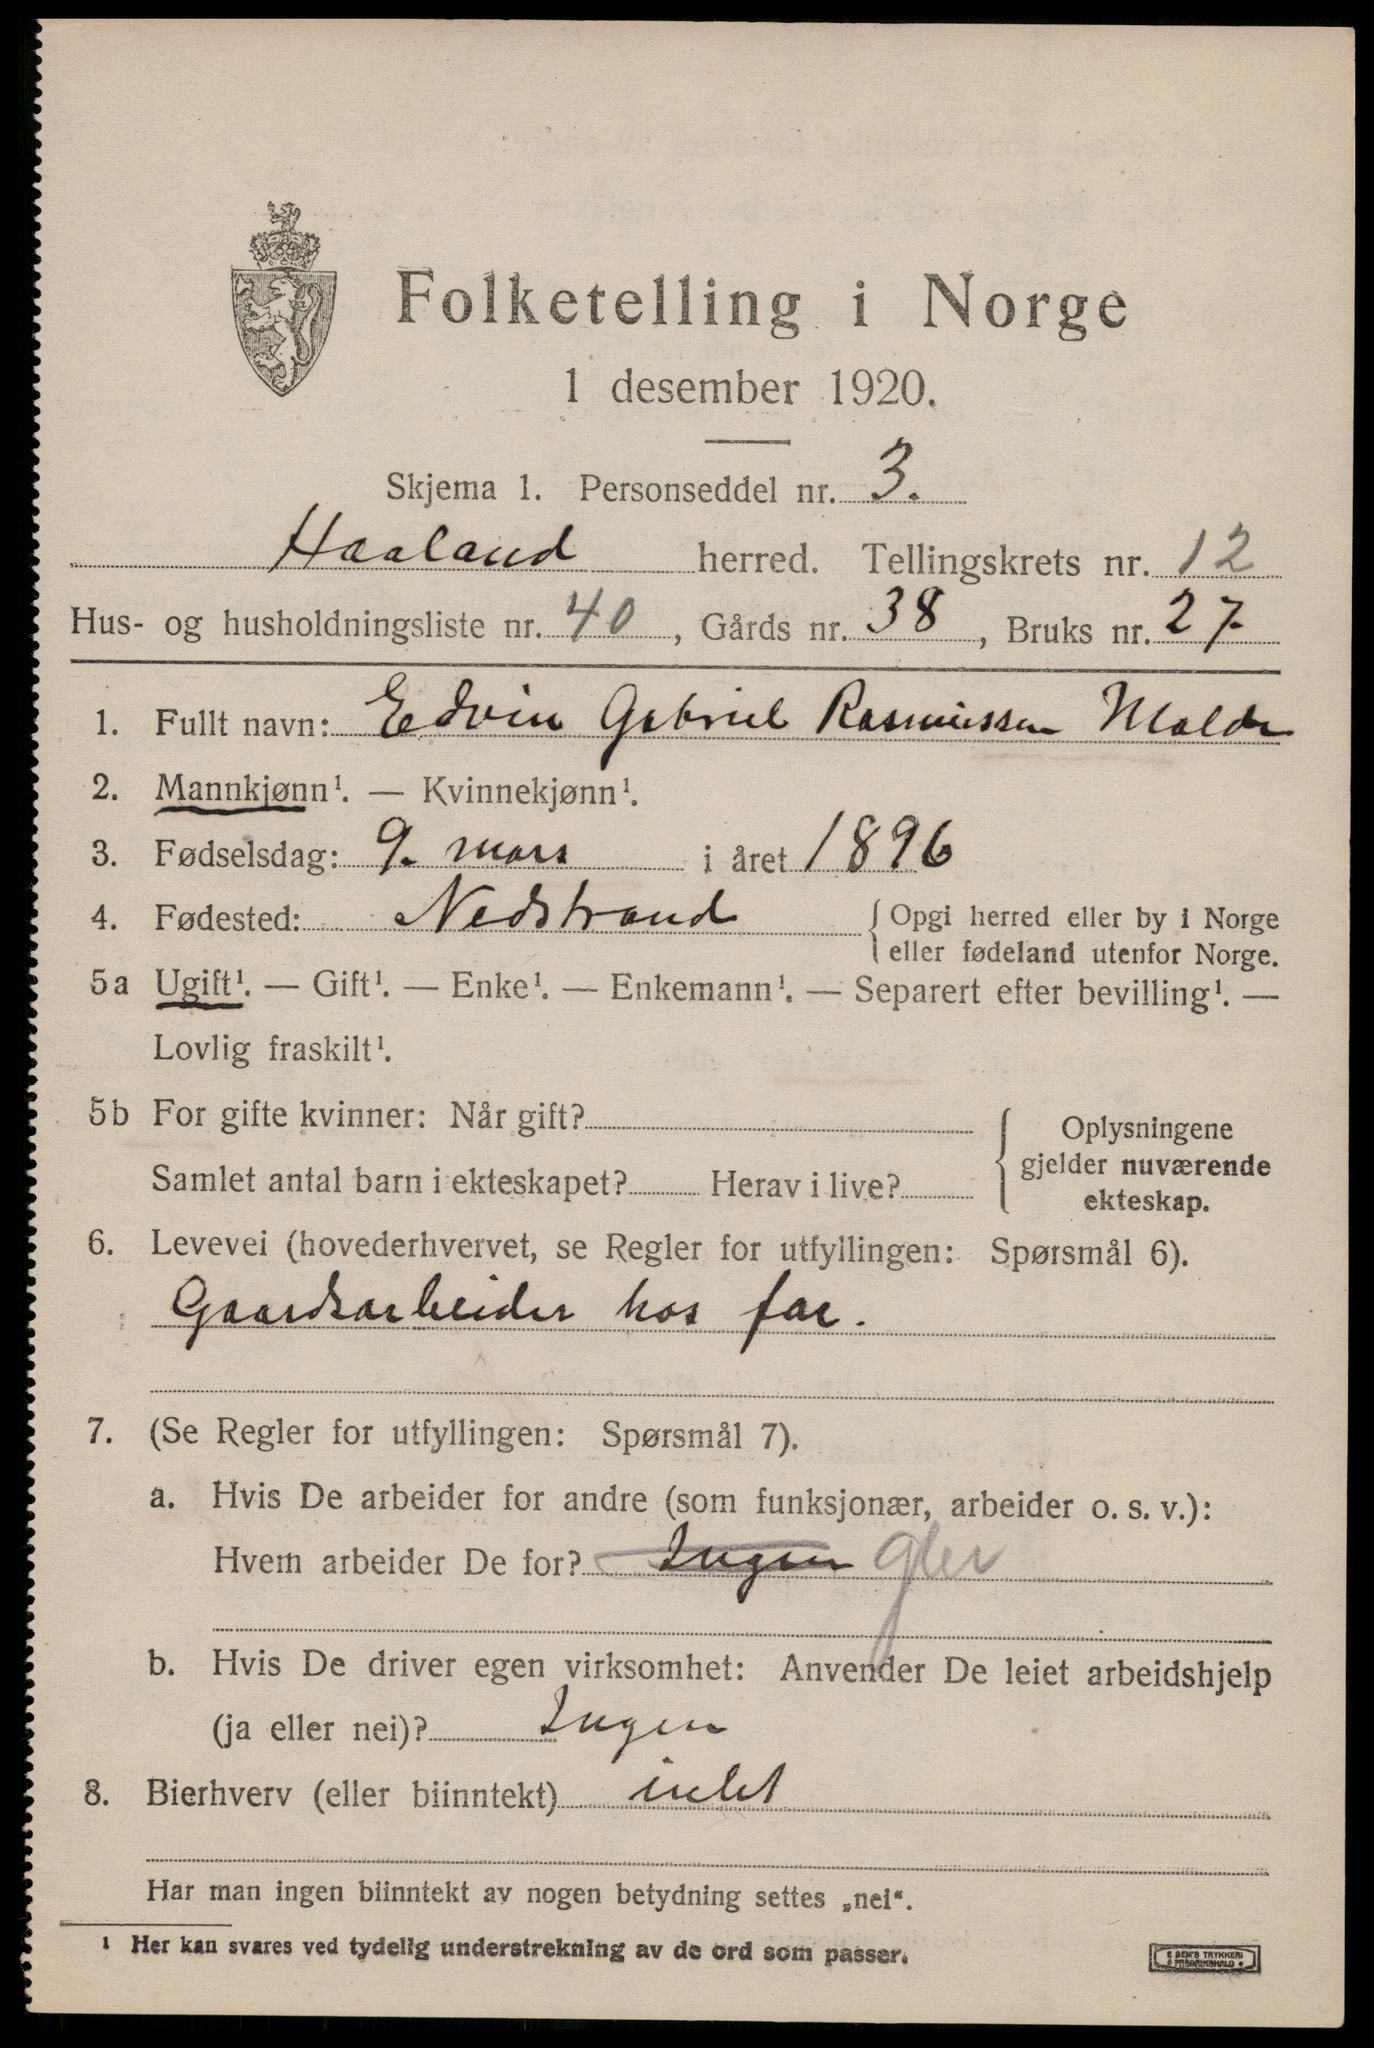 Folketelling i Norge
1 desember 1920.
Skjema 1. Personseddel nr. 3.
Haaland herred. Tellingskrets nr. 12
Hus- og husholdningsliste nr. 40, Gårds nr. 38, Bruks nr. 27
1. Fullt navn: Edvin Gabriel Rasmussen Malde
2. Mannkjønn¹. — Kvinnekjønn¹.
3. Fødselsdag: 9. mars i året 1896
4. Fødested: Nedstrand {Opgi herred eller by i Norge
eller fødeland utenfor Norge.
5a Ugift¹. — Gift¹. — Enke¹. — Enkemann¹. — Separert efter bevilling¹. —
Lovlig fraskilt¹.
5b For gifte kvinner: Når gift?
Samlet antal barn i ekteskapet? Herav i live?
Oplysningene
gjelder nuværende
ekteskap.
6. Levevei (hovederhvervet, se Regler for utfyllingen: Spørsmål 6).
Gaardsarbeider hos far.
7. (Se Regler for utfyllingen: Spørsmål 7).
a. Hvis De arbeider for andre (som funksjonær, arbeider o. s. v.):
Hvem arbeider De for? Ingen
b. Hvis De driver egen virksomhet: Anvender De leiet arbeidshjelp
(ja eller nei)? Ingen
8. Bierhverv (eller biinntekt) intet
Har man ingen biinntekt av nogen betydning settes „nei“.
¹ Her kan svares ved tydelig understrekning av de ord som passer.